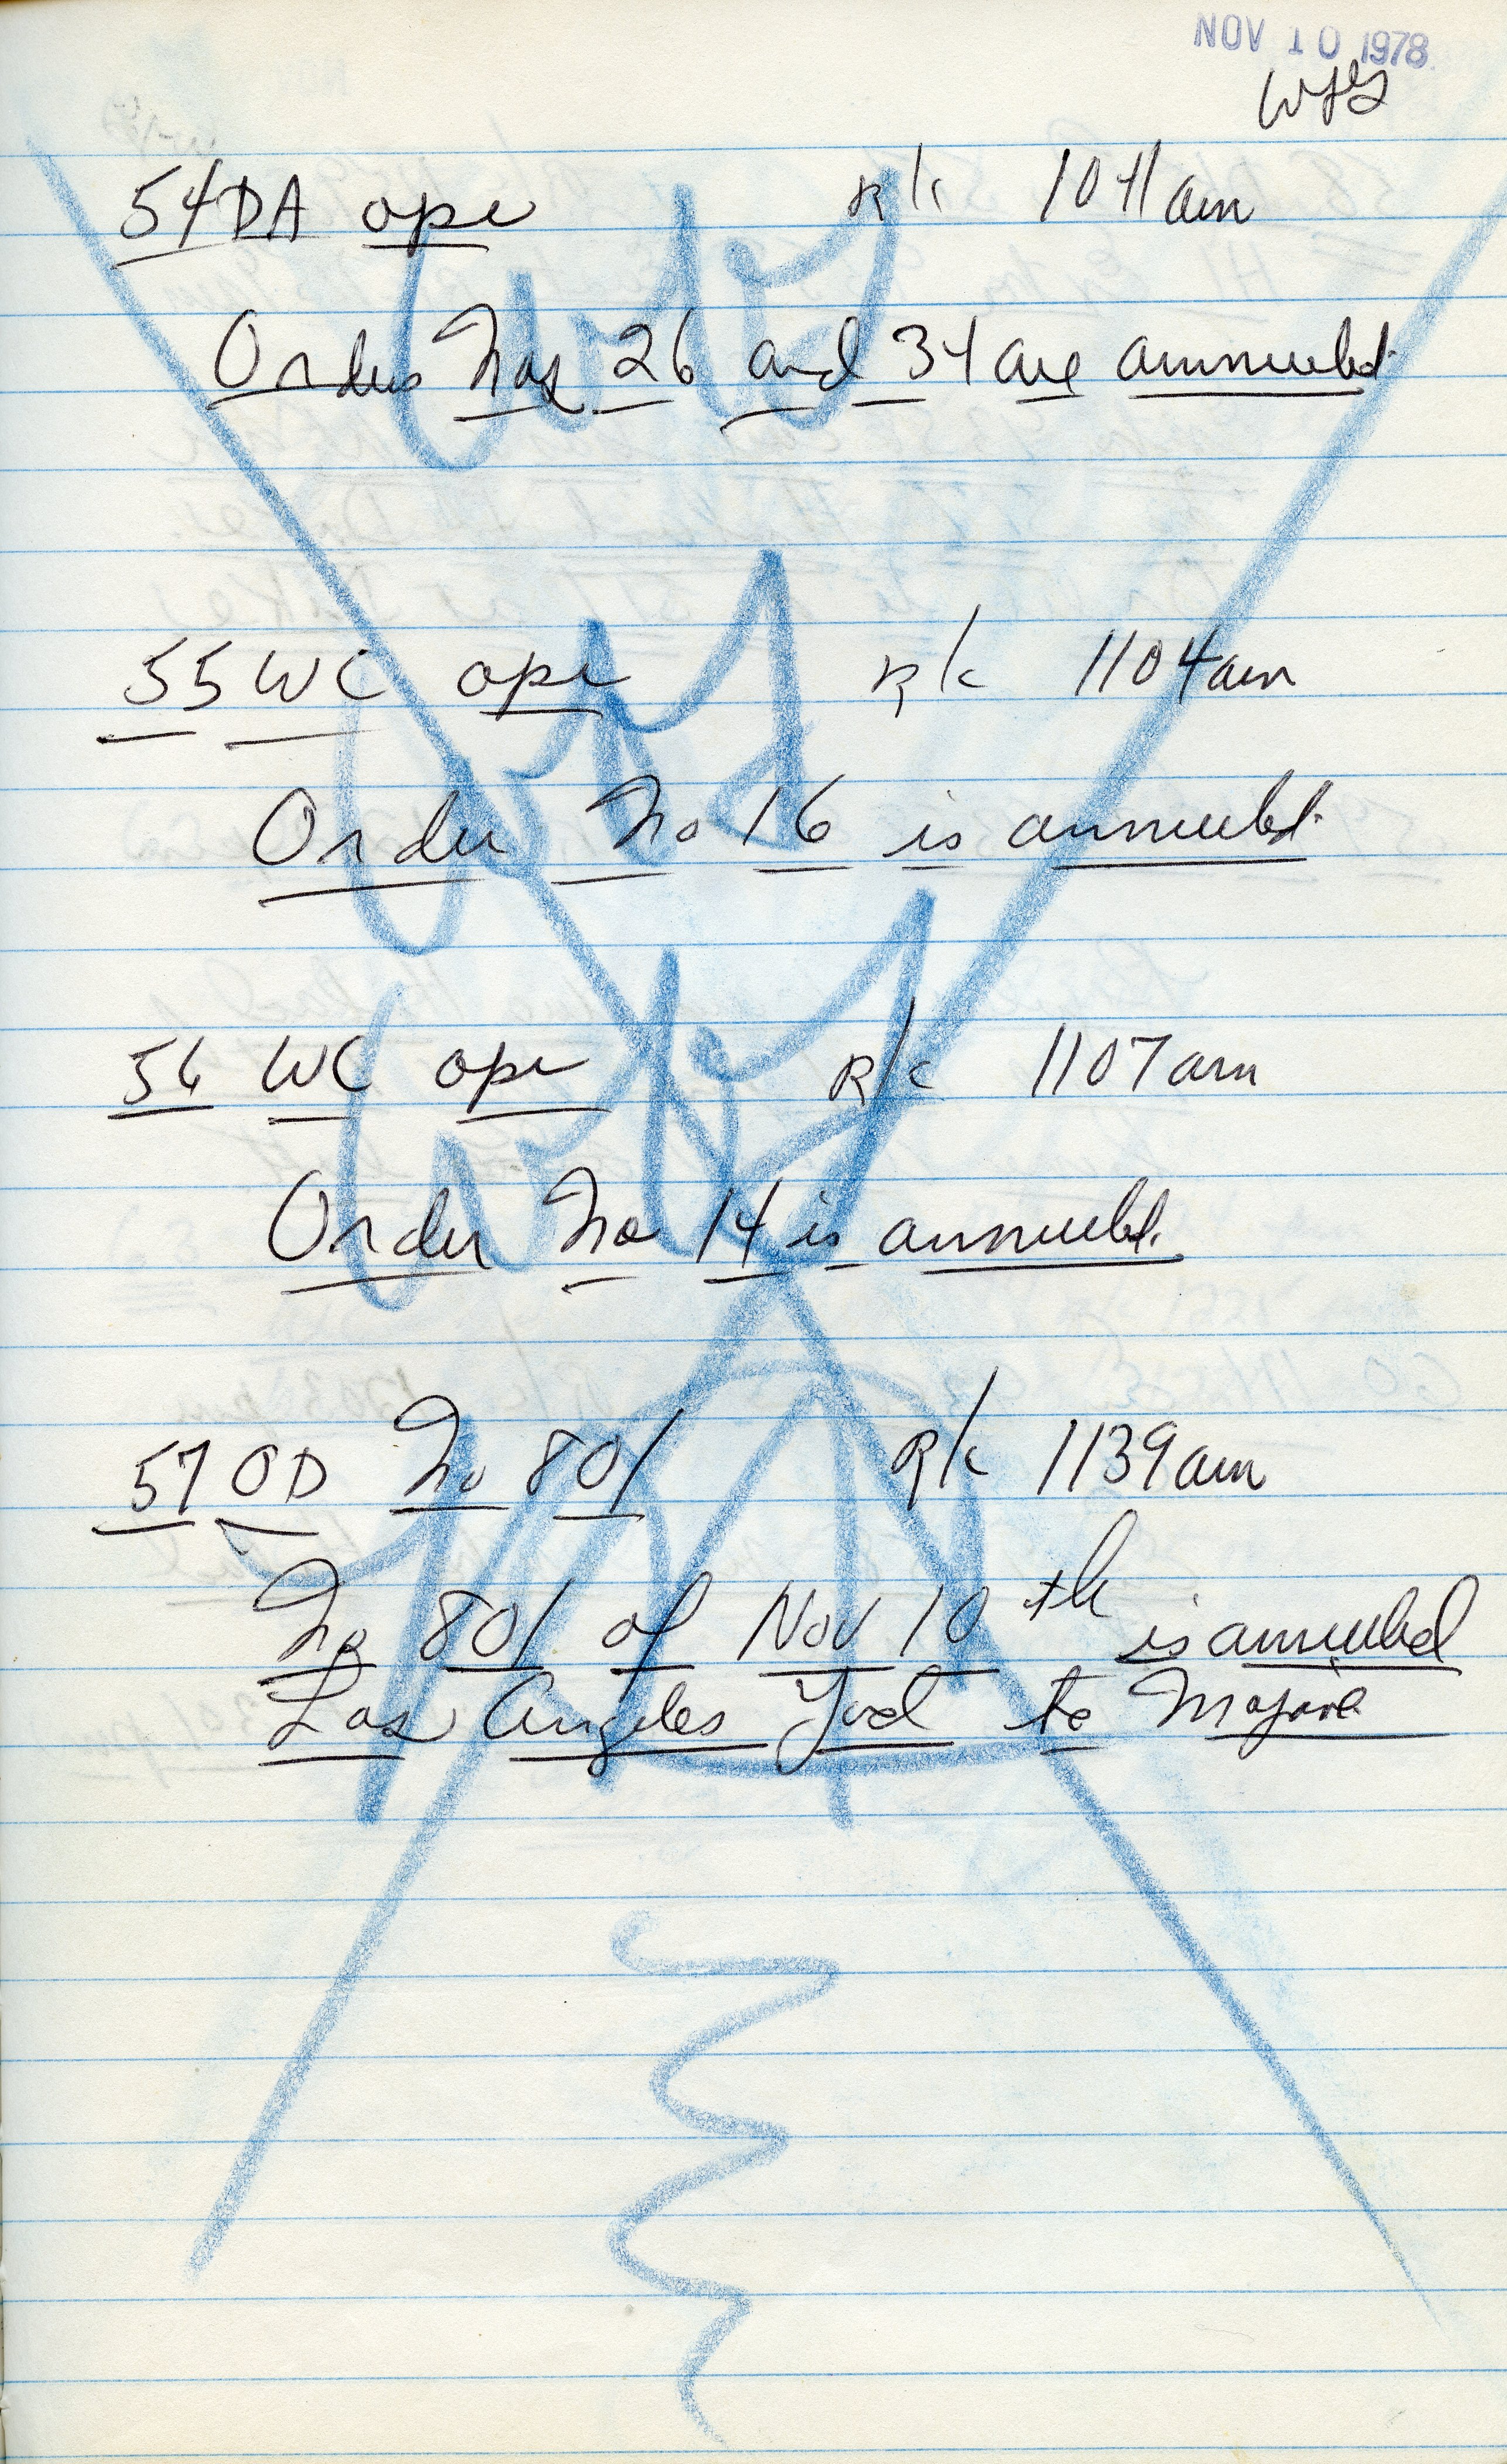 NOV 10 1978
WJS
54 DA opr R/c 1041am
Orders Nos 26 and 34 are annulled.
55 WC opr R/c 1104am
Order No 16 is annulled.
56 WC opr R/c 1107am
Order No 14 is annulled.
57 OD No 801 R/c 1139am
No 801 of Nov 10th is annulled
Los Angeles Yard to Mojave